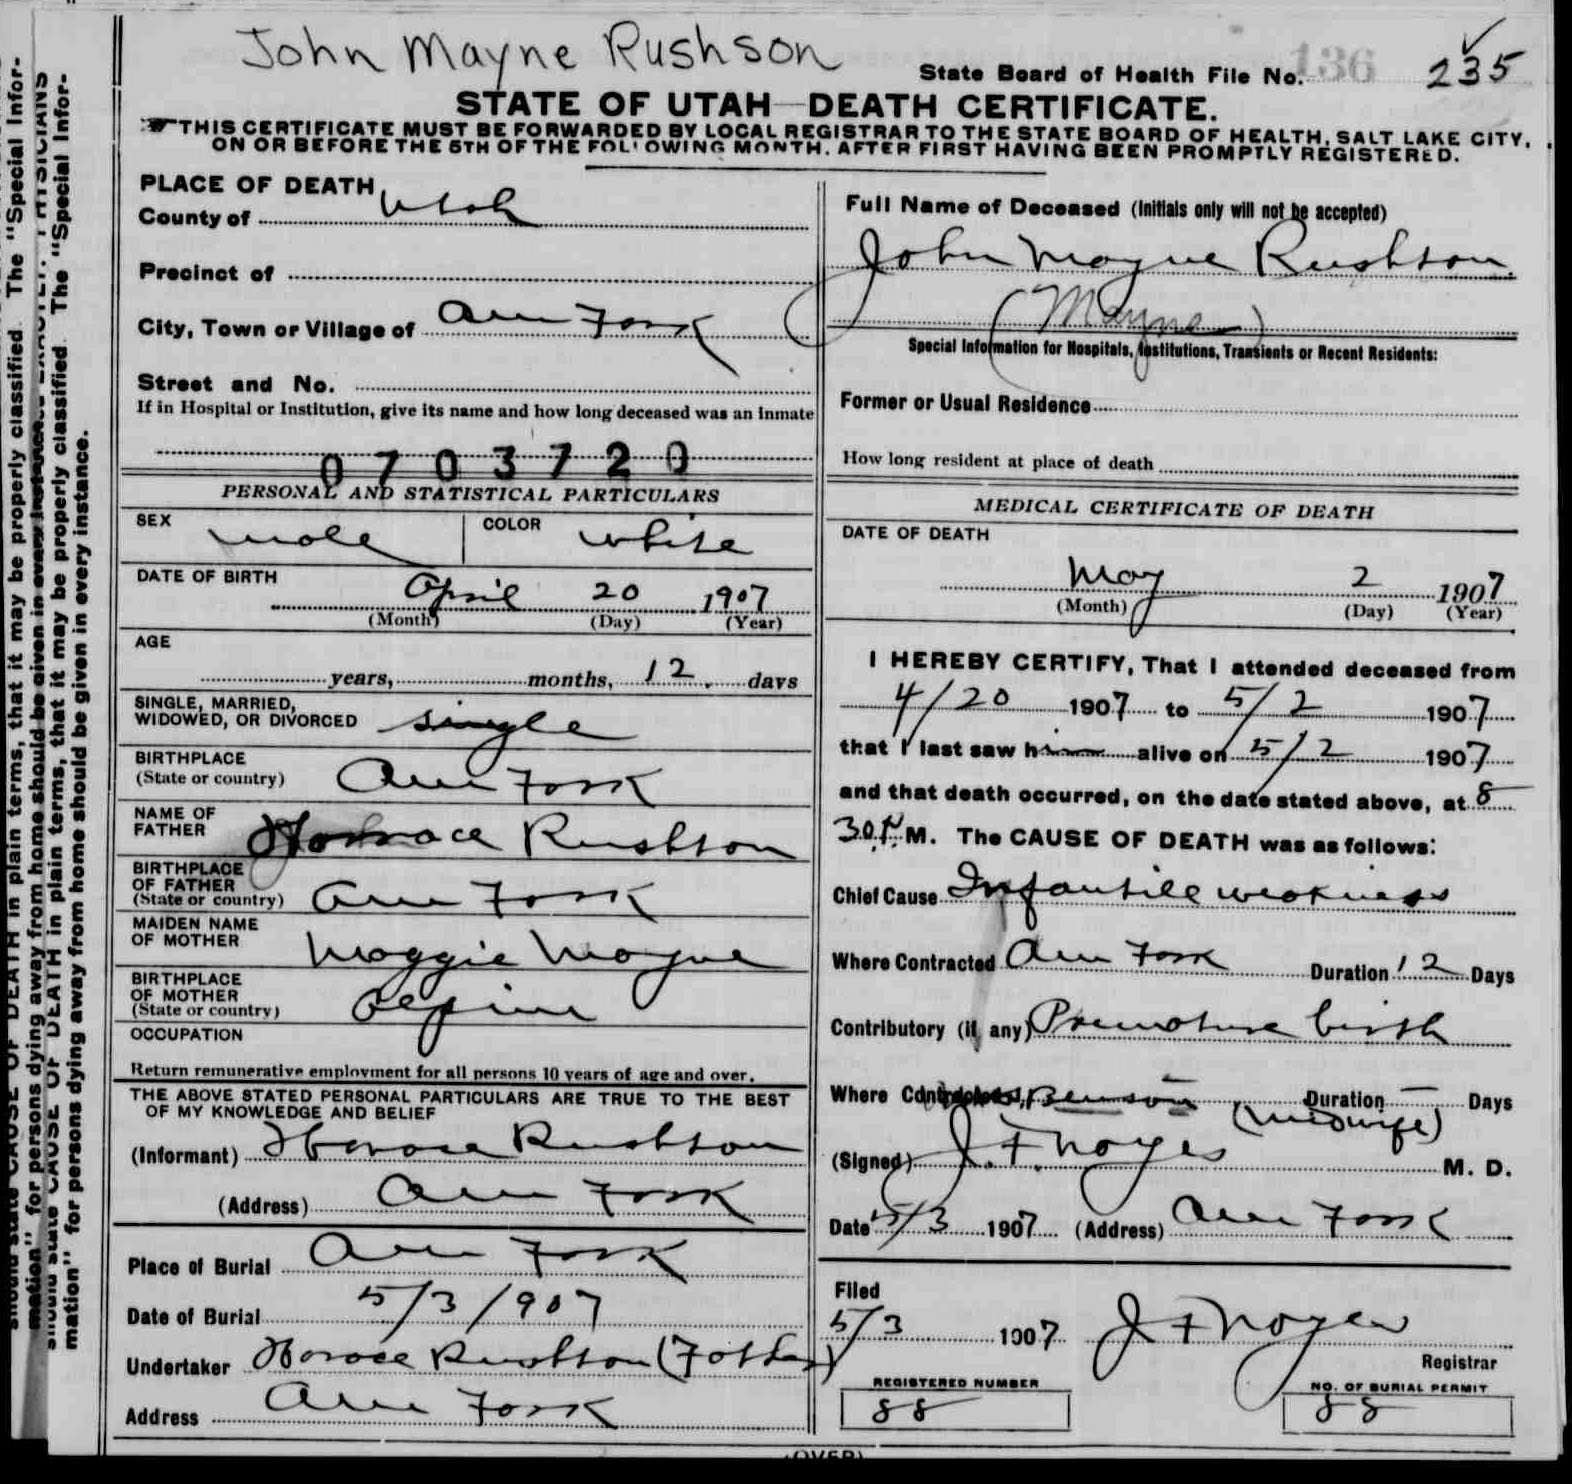 John Mayne Rushson
State Board of Health File No. 136 235
STATE OF UTAH—DEATH CERTIFICATE.
THIS CERTIFICATE MUST BE FORWARDED BY LOCAL REGISTRAR TO THE STATE BOARD OF HEALTH, SALT LAKE CITY,
ON OR BEFORE THE 5TH OF THE FOLLOWING MONTH, AFTER FIRST HAVING BEEN PROMPTLY REGISTERED.
PLACE OF DEATH
County of Utah
Precinct of
City, Town or Village of Am Fork
Street and No.
If in Hospital or Institution, give its name and how long deceased was an inmate
0703720
PERSONAL AND STATISTICAL PARTICULARS
SEX male COLOR white
DATE OF BIRTH April 20 1907
(Month) (Day) (Year)
AGE
years, months, 12 days
SINGLE, MARRIED,
WIDOWED, OR DIVORCED single
BIRTHPLACE
(State or country) Am Fork
NAME OF
FATHER Horace Rushton
BIRTHPLACE
OF FATHER
(State or country) Am Fork
MAIDEN NAME
OF MOTHER Maggie Mayne
BIRTHPLACE
OF MOTHER
(State or country) Alpine
OCCUPATION
Return remunerative employment for all persons 10 years of age and over.
THE ABOVE STATED PERSONAL PARTICULARS ARE TRUE TO THE BEST
OF MY KNOWLEDGE AND BELIEF
(Informant) Horace Rushton
(Address) Am Fork
Place of Burial Am Fork
Date of Burial 5/3/907
Undertaker Horace Rushton (Father)
Address Am Fork
Full Name of Deceased (Initials only will not be accepted)
John Mayne Rushton
(Mayne)
Special Information for Hospitals, Institutions, Transients or Recent Residents:
Former or Usual Residence
How long resident at place of death
MEDICAL CERTIFICATE OF DEATH
DATE OF DEATH
May 2 1907
(Month) (Day) (Year)
I HEREBY CERTIFY, That I attended deceased from
4/20 1907 to 5/2 1907
that I last saw him alive on 5/2 1907
and that death occurred, on the date stated above, at 8
30 P. M. The CAUSE OF DEATH was as follows:
Chief Cause Infantile weakness
Where Contracted Am Fork Duration 12 Days
Contributory (if any) Premature birth
Where Contracted Benson Duration — Days
(midwife)
(Signed) J. F. Noyes M. D.
Date 5/3 1907 (Address) Am Fork
Filed
5/3 1907 J F Noyes
Registrar
REGISTERED NUMBER
88
NO. OF BURIAL PERMIT
88
(OVER)
in plain terms, that it may be properly classified. The "Special Infor-
mation" for persons dying away from home should be given in every instance.
should state CAUSE OF DEATH in plain terms, that it may be properly classified. The "Special Infor-
mation" for persons dying away from home should be given in every instance.